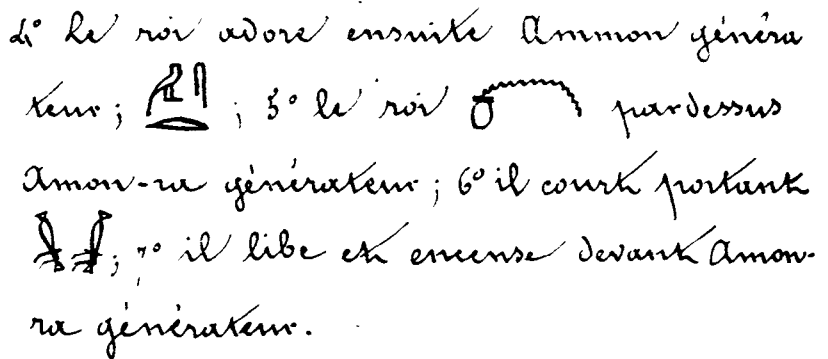 4° Le roi adore ensuite Ammon généra
teur; ; 5° le roi pardessus
Amon-ra générateur; 6° il court portant
; 7° il libe et encense devant Amon-
ra générateur.